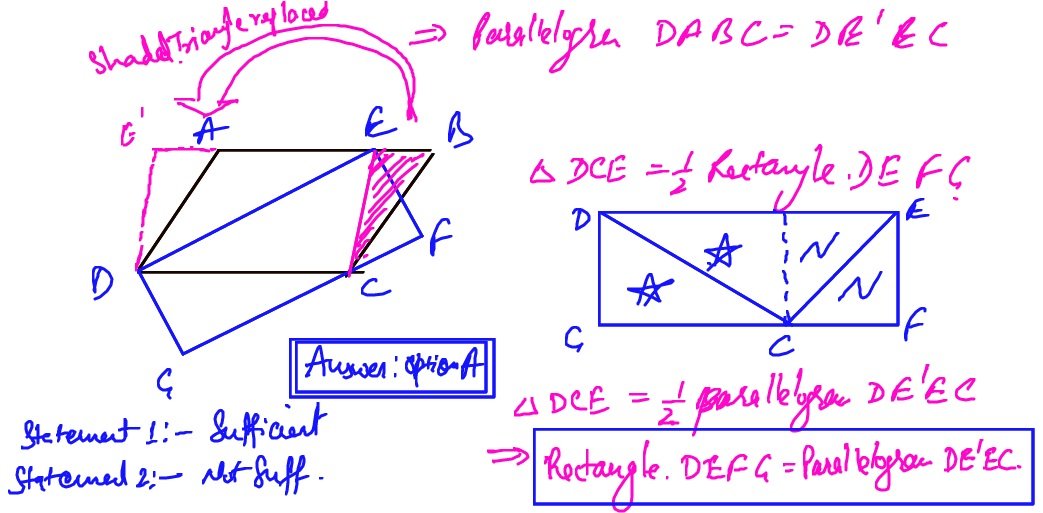 Shaded Triangle replaced
⇒ Parallelogram DABC = DE'EC
E' A E B
D C F
G
△ DCE = 1/2 Rectangle. DEFG
D E
G C F
Answer: option A
△ DCE = 1/2 parallelogram DE'EC
Statement 1:- Sufficient
Statement 2:- Not Suff.
⇒ Rectangle. DEFG = Parallelogram DE'EC.